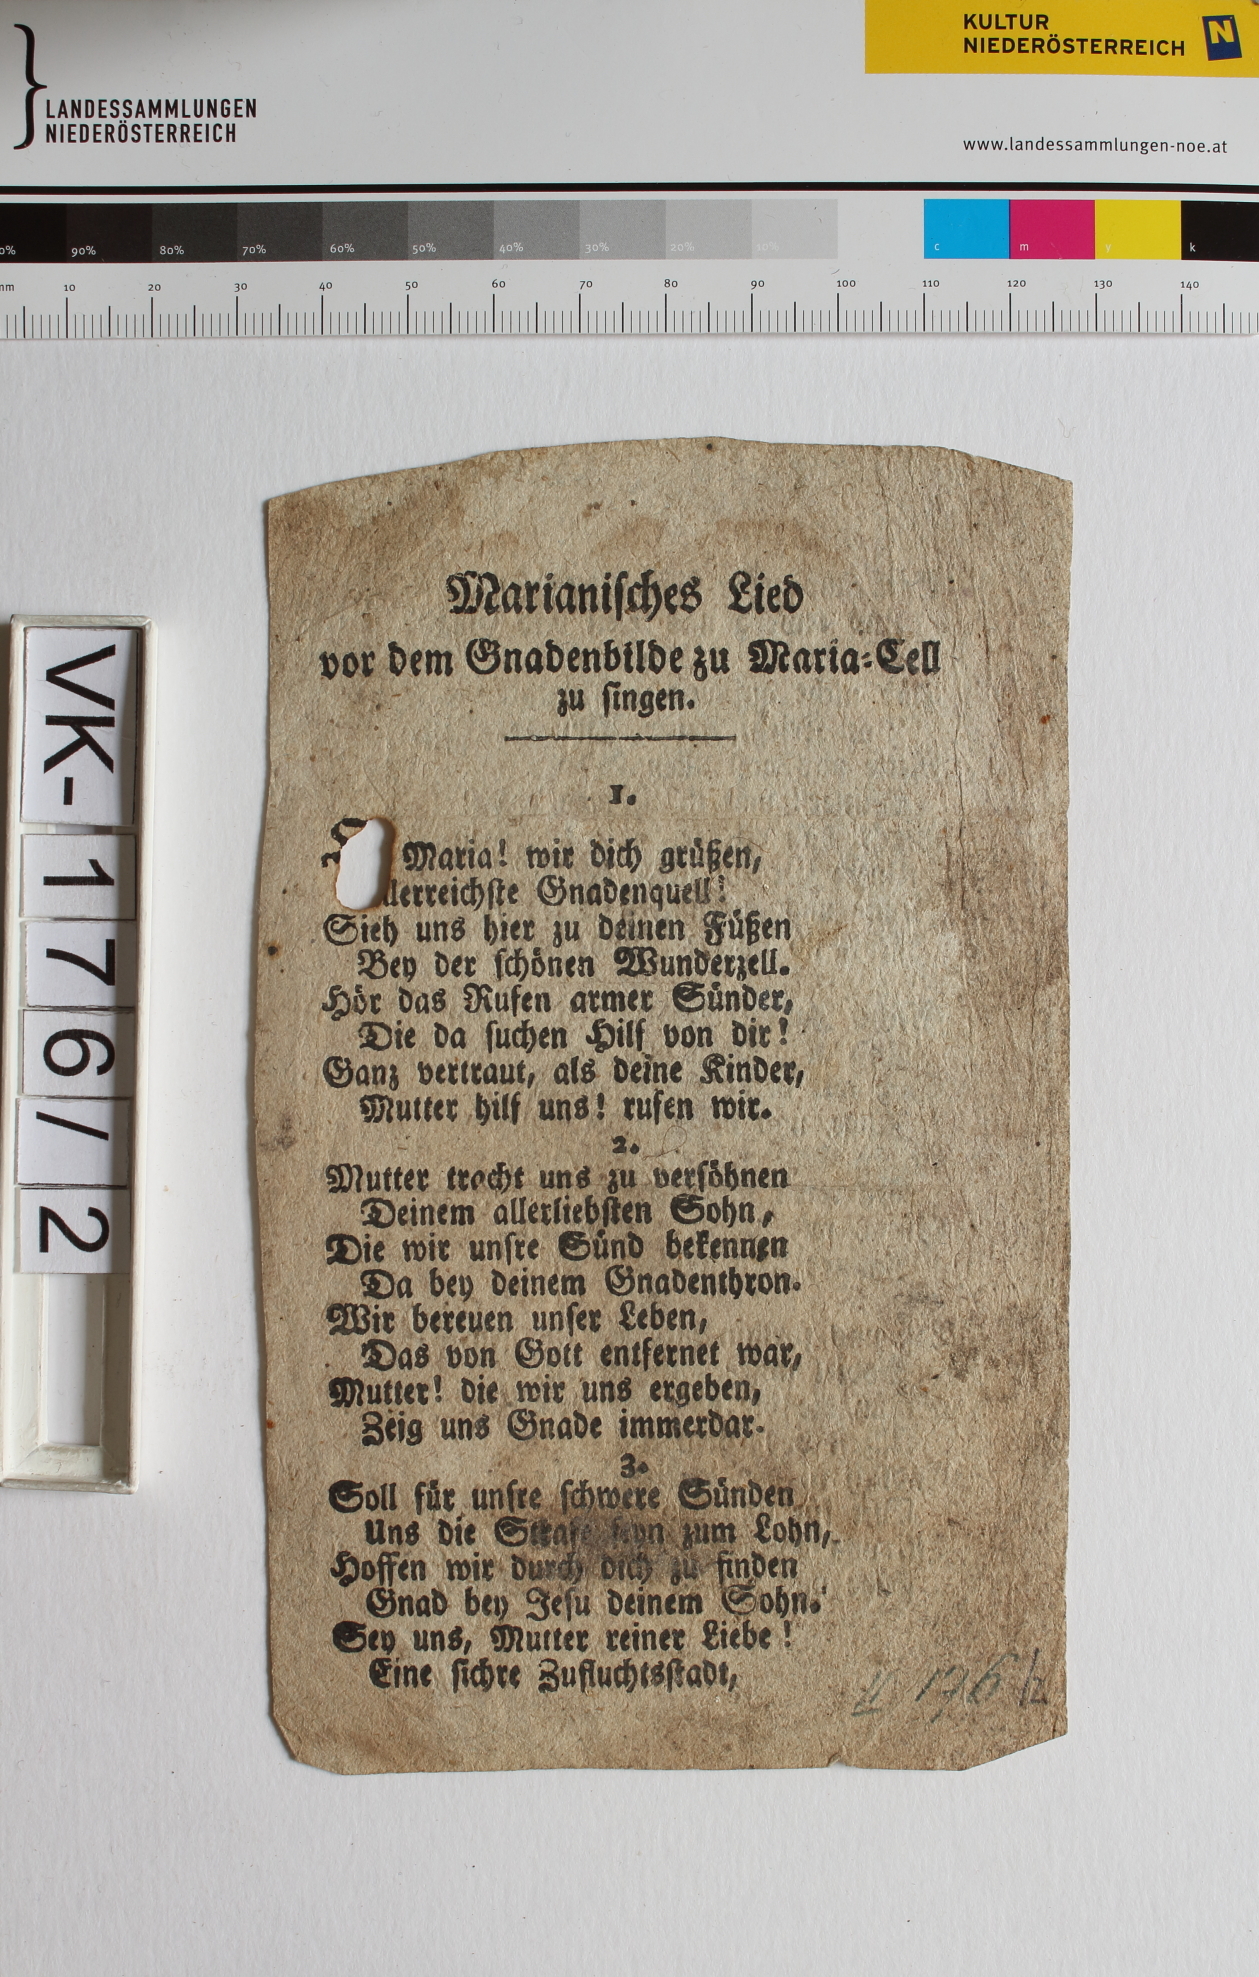 LANDESSAMMLUNGEN
NIEDERÖSTERREICH
KULTUR
NIEDERÖSTERREICH
N
www.landessammlungen-noe.at
90% 80% 70% 60% 50% 40% 30% 20% 10% c m y k
mm 10 20 30 40 50 60 70 80 90 100 110 120 130 140
VK-176/2
Marianiſches Lied
vor dem Gnadenbilde zu Maria-Cell
zu ſingen.
1.
Maria! wir dich grüßen,
llerreichſte Gnadenquell!
Sieh uns hier zu deinen Füßen
Bey der ſchönen Wunderzell.
Hör das Rufen armer Sünder,
Die da ſuchen Hilf von dir!
Ganz vertraut, als deine Kinder,
Mutter hilf uns! rufen wir.
2.
Mutter tracht uns zu verſöhnen
Deinem allerliebſten Sohn,
Die wir unſre Sünd bekennen
Da bey deinem Gnadenthron.
Wir bereuen unſer Leben,
Das von Gott entfernet war,
Mutter! die wir uns ergeben,
Zeig uns Gnade immerdar.
3.
Soll für unſre ſchwere Sünden
Uns die Strafe ſeyn zum Lohn,
Hoffen wir durch dich zu finden
Gnad bey Jeſu deinem Sohn.
Sey uns, Mutter reiner Liebe!
Eine ſichre Zufluchtsſtadt,
176/2